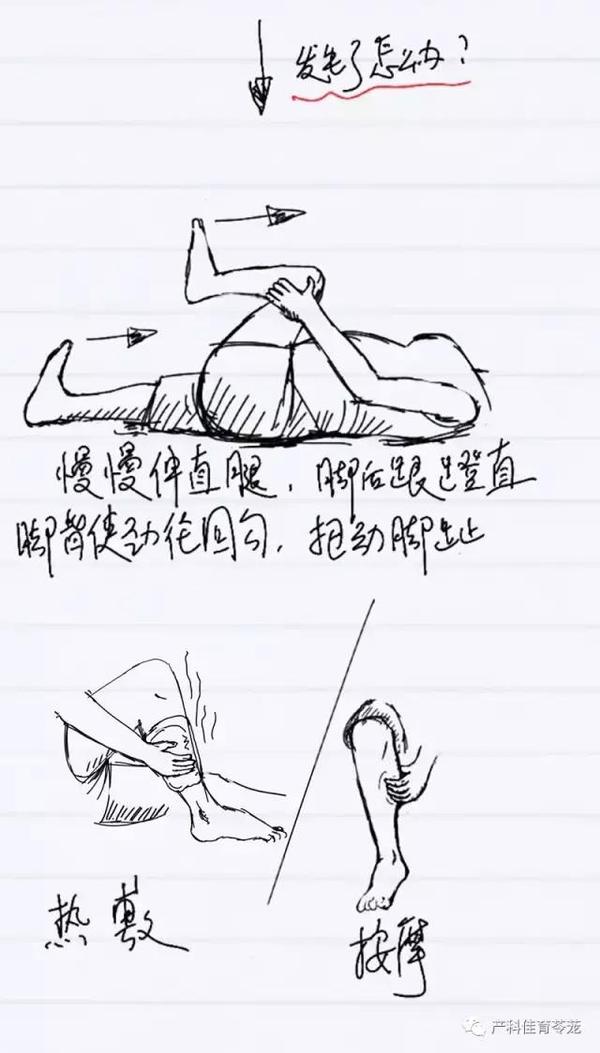 发生了怎么办？
慢慢伸直腿，脚后跟蹬直
脚背使劲往回勾，扭动脚趾
热敷
按摩
产科佳育苓茏